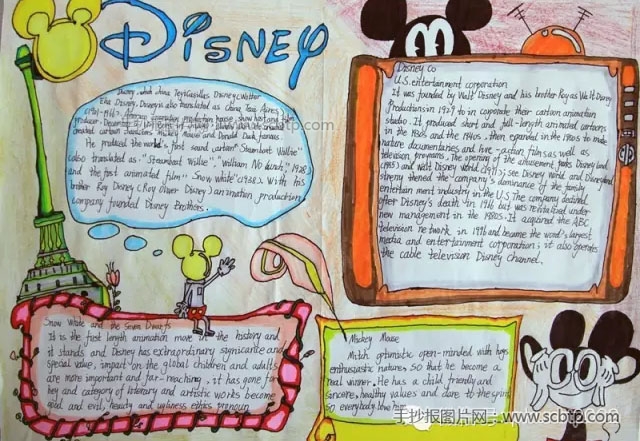 DISNEY
Disney
Elia Disney, Disney is also translated as
producer, December
created cartoon characters Mickey Mouse and Donald Duck famous.
He produced the world's first sound cartoon "Steamboat Willie"
also translated as "Steamboat Willie", 1928)
and the first animated film "Snow white" (1938). With his
brother Roy Disney (Roy Oliver Disney) animation production
company founded Disney Brothers.
Disney Co
U.S. entertainment corporation
It was founded by Walt Disney and his brother Roy as Walt Disney
Productions in 1929 to in corporate their cartoon animation
studio. It produced short and full-length animated cartoons
in the 1930s and the 1940s, then expanded in the 1950s to make
nature documentaries and live-action films as well as
television programs. The opening of the amusement parks Disney land
(1955) and Walt Disney World (1971); see Disney World and Disneyland
strengthened the company's dominance of the family
entertainment industry in the U.S. The company declined
after Disney's death in 1966 but was revitalized under
new management in the 1980s. It acquired the ABC
television network in 1996 and became the world's largest
media and entertainment corporation; it also operates
the cable television Disney Channel.
Snow White and the Seven Dwarfs
It is the first length animation move in the history and
it stands and Disney has extraordinary significance and
special value, impact on the global children and adults
are more important and far-reaching, it has gone far
key and category of literary and artistic works become
good and evil, beauty and ugliness ethics pronoun
Mickey Mouse
Mitch optimistic open-minded with
enthusiastic nature, so that be become a
real winner. He has a child friendly and
sancore, healthy values and dare to the
so everybody love
www.scbtp.com
手抄报图片网:www.scbtp.com